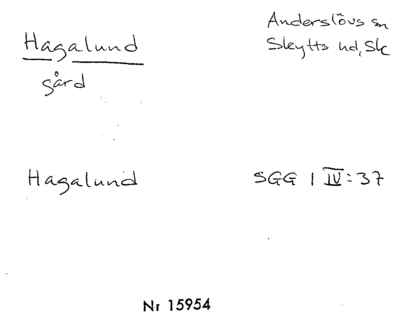 Hagalund
gård
Anderslövs sn
Skytts hd, Sk
Hagalund
SGG 1 IV:37
Nr 15954